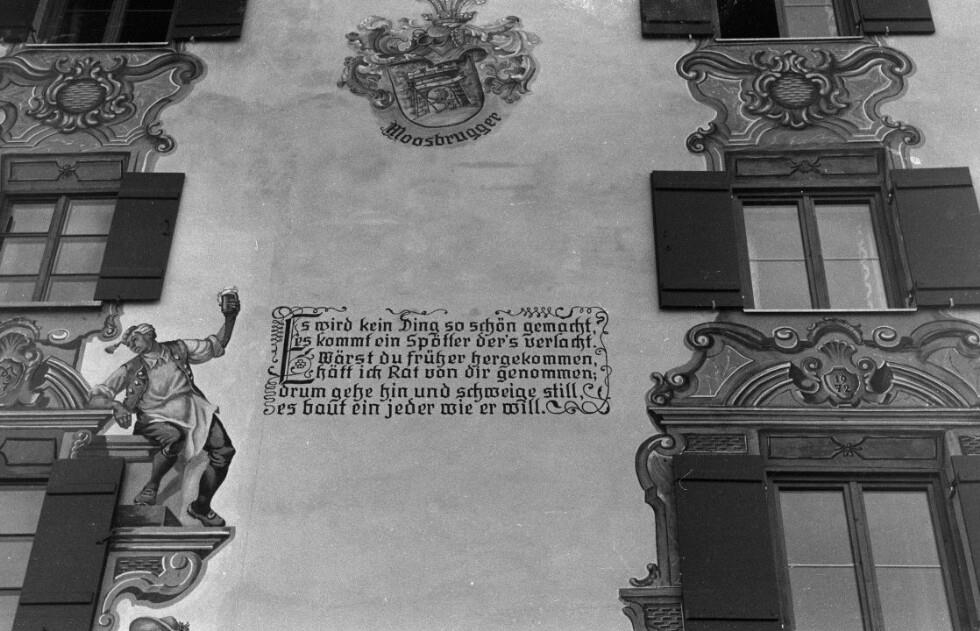 Moosbrugger
Es wird kein Ding so schön gemacht,
es kommt ein Spötter der's verlacht.
Wärst du früher hergekommen,
hätt ich Rat von dir genommen;
drum gehe hin und schweige still,
es baut ein jeder wie er will.